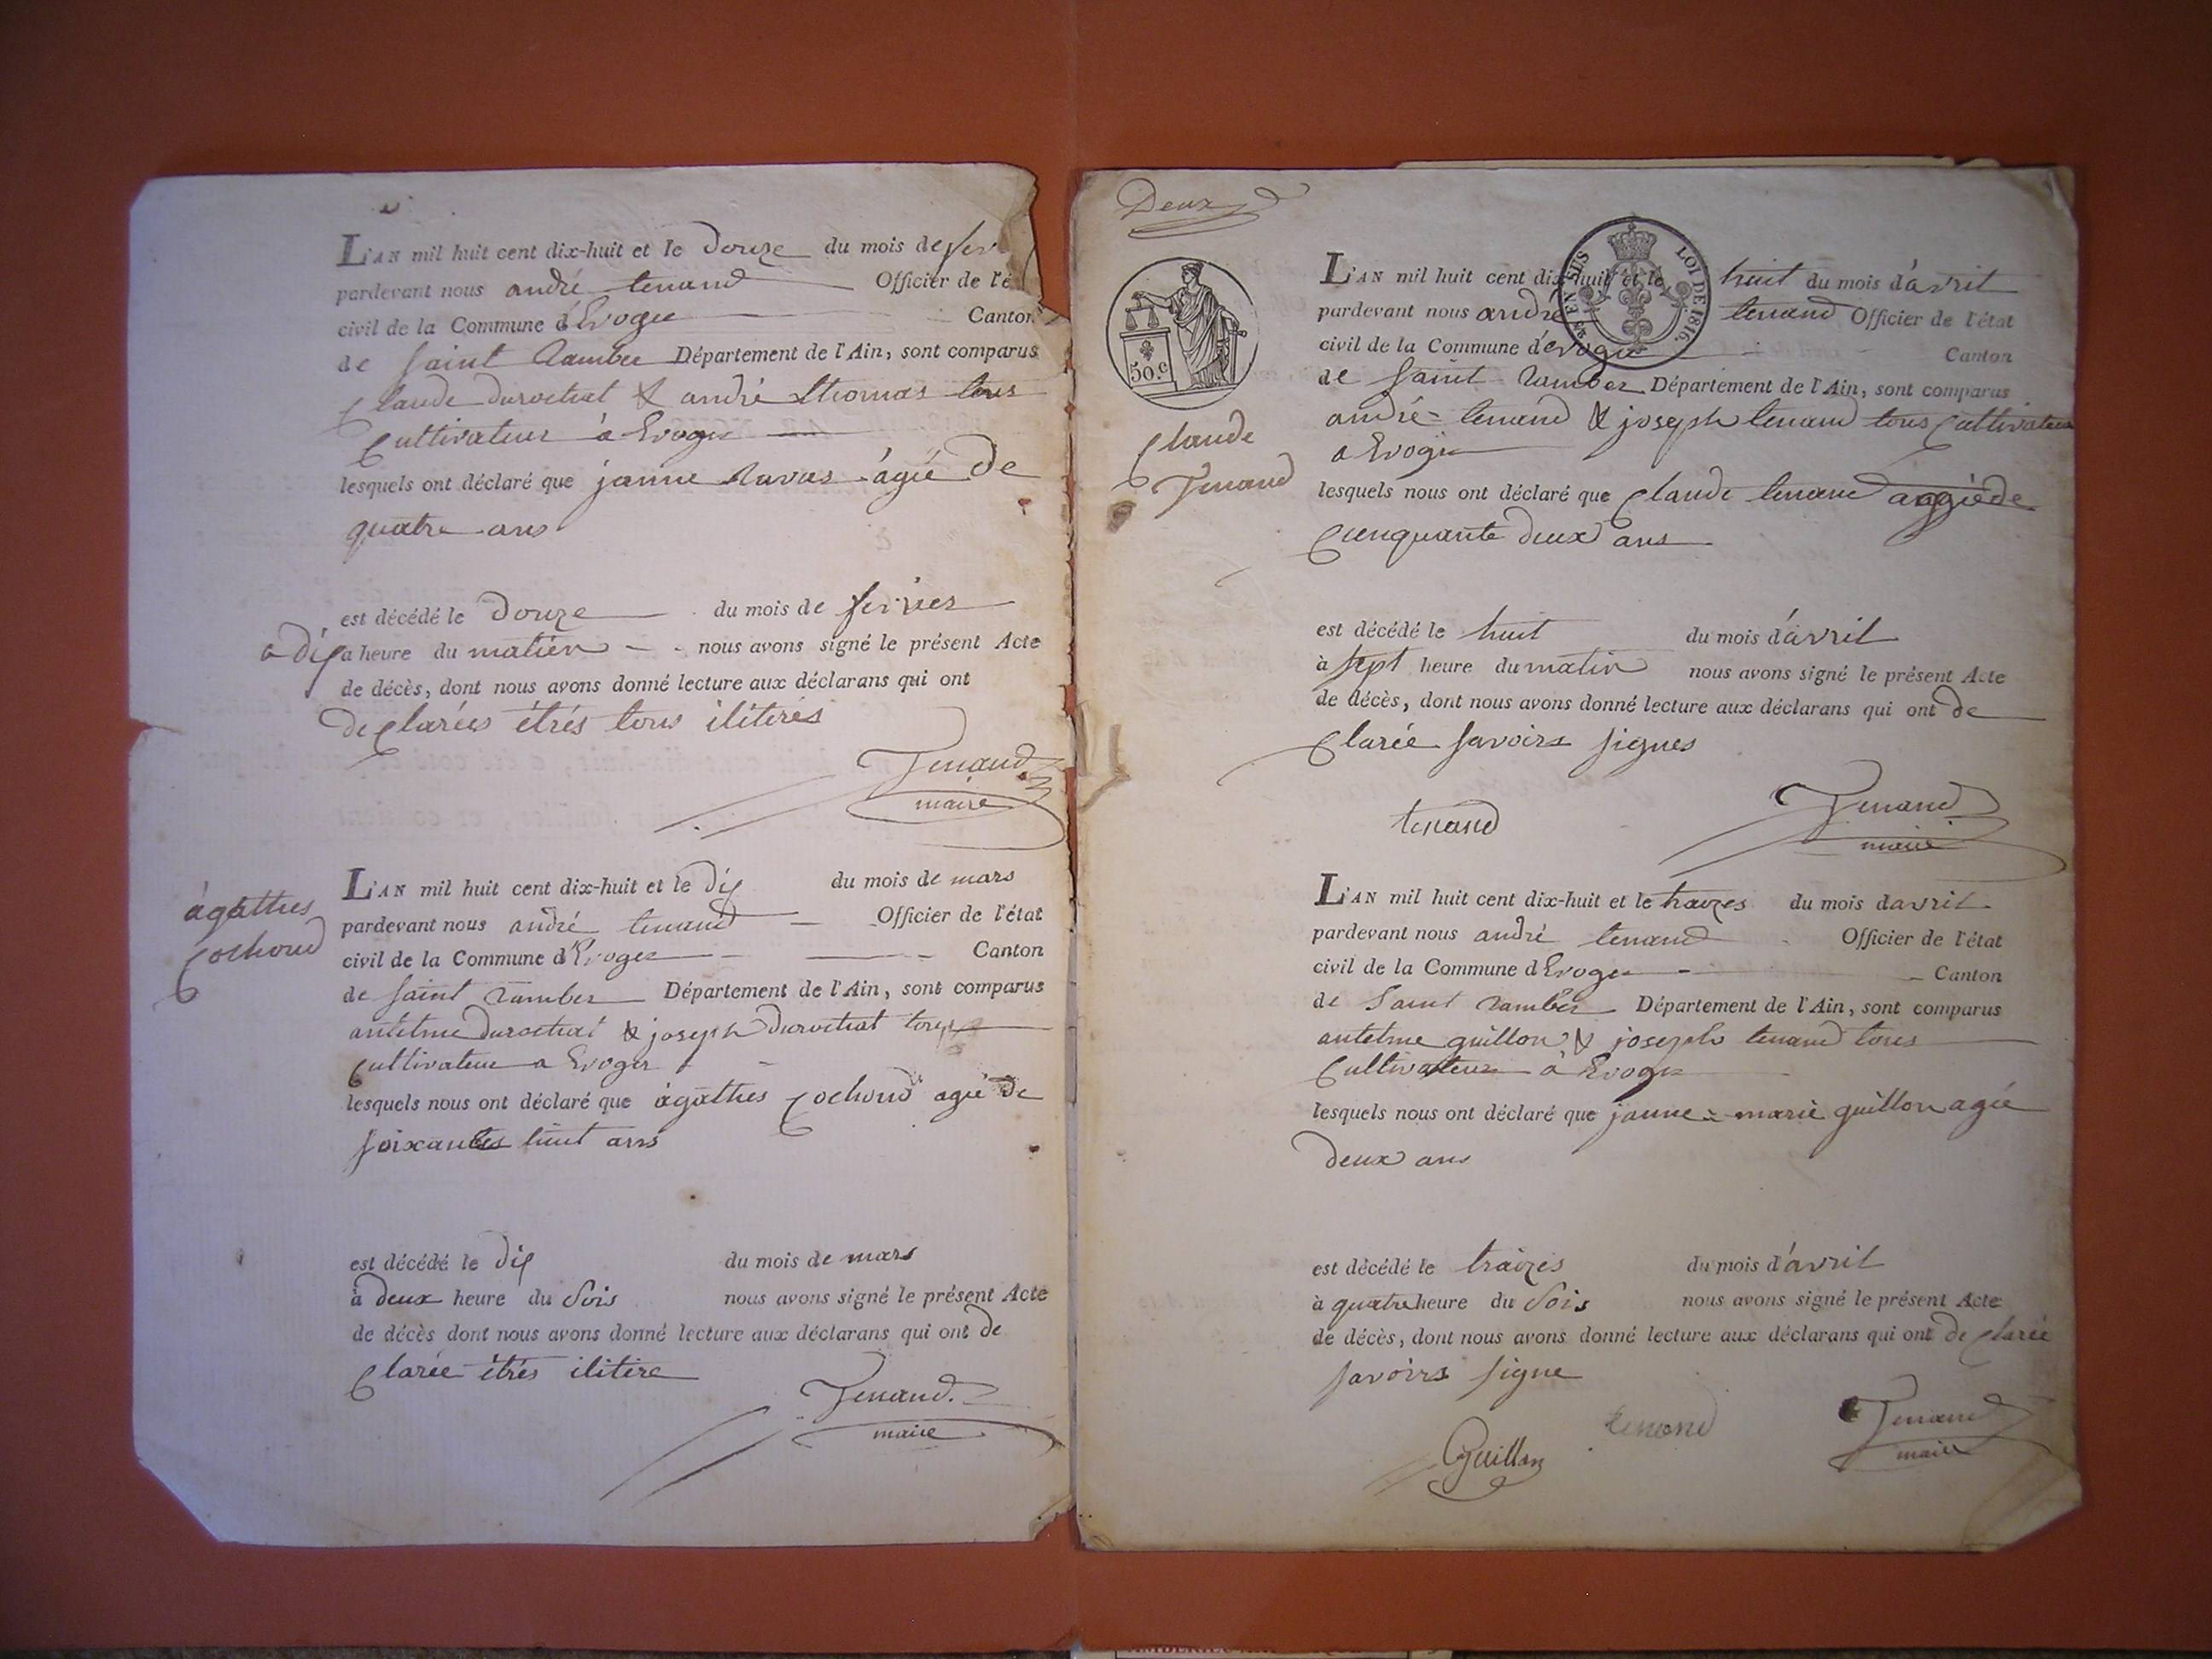 L'AN mil huit cent dix-huit et le douze du mois de fev
pardevant nous andré tenand Officier de l'é
civil de la Commune d'Evoge Canton
de saint Ramber Département de l'Ain, sont comparus
Claude durochat & andré thomas tous
Cultivateur à Evoges
lesquels ont déclaré que janne ravas âgié de
quatre ans
est décédé le douze du mois de fevrier
a dix a heure du matien nous avons signé le présent Acte
de décès, dont nous avons donné lecture aux déclarans qui ont
declarées étrés tous ilitérés
Tenand
maire
àgathes
Cochoud
L'AN mil huit cent dix-huit et le dix du mois de mars
pardevant nous andré tenand Officier de l'état
civil de la Commune d'Evoges Canton
de saint ramber Département de l'Ain, sont comparus
antelme durochat & joseph durochat tous
Cultivateur a Evoges
lesquels nous ont déclaré que àgathes Cochoud agié de
soixantes huit ans
est décédé le dix du mois de mars
à deux heure du Soir nous avons signé le présent Acte
de décès dont nous avons donné lecture aux déclarans qui ont de
Clarée étrés ilitére
Tenand
maire
Deux
50.c
EN SUS
LOI DE 1816.
Claude
Tenand
L'AN mil huit cent dix-huit et le huit du mois d'avril
pardevant nous andré tenand Officier de l'état
civil de la Commune d'evoge Canton
de saint Ramber Département de l'Ain, sont comparus
andré tenand & joseph tenand tous Cultivateur
a Evoges
lesquels nous ont déclaré que Claude tenand aggié de
Cenquante deux ans
est décédé le huit du mois d'avril
à sept heure du matin nous avons signé le présent Acte
de décès, dont nous avons donné lecture aux déclarans qui ont de
Clarée savoirs signes
tenand
Tenand
maire
L'AN mil huit cent dix-huit et le traizes du mois davril
pardevant nous andré tenand Officier de l'état
civil de la Commune d Evoges Canton
de Saint ramber Département de l'Ain, sont comparus
antelme guillon & joseph tenand tous
Cultivateur à Evoges
lesquels nous ont déclaré que janne-marie guillon agié
deux ans
est décédé le traizes du mois d'avril
à quatre heure du Soir nous avons signé le présent Acte
de décès, dont nous avons donné lecture aux déclarans qui ont de Clarée
savoirs signe
Guillon
tenand
Tenand
maire